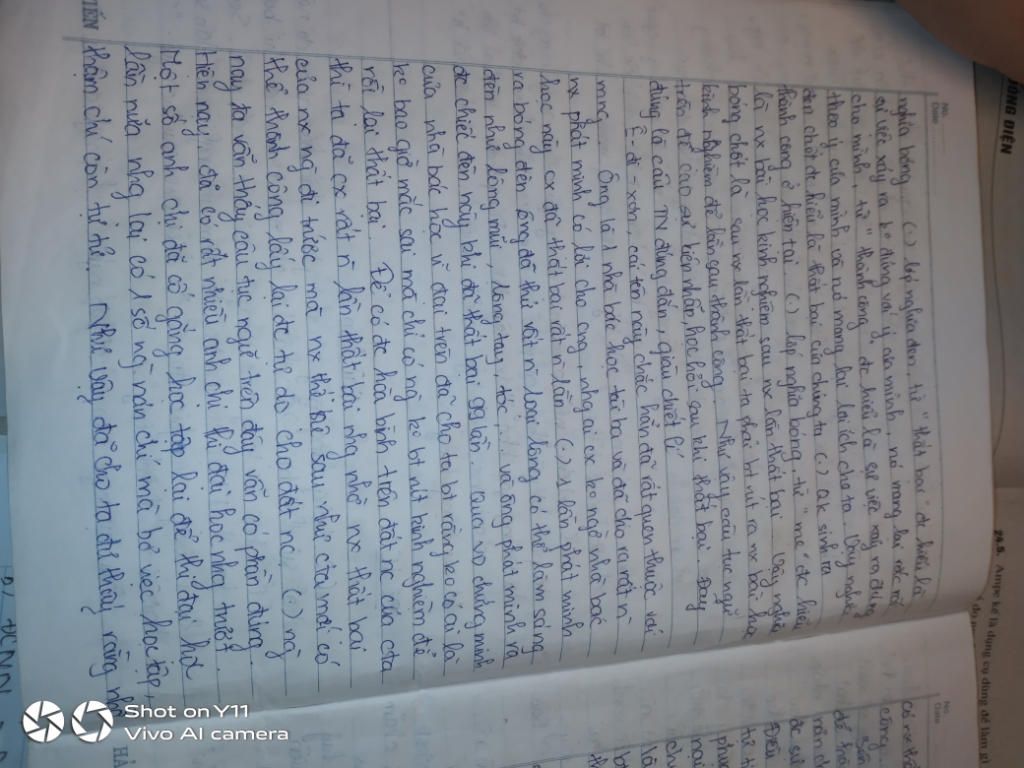 nghĩa bóng. (.) lớp nghĩa đen, từ "thất bại" đc hiểu là
sự việc xảy ra ko đúng với ý của mình, nó mang lại rắc rối
cho mình, từ "thành công" đc hiểu là sự việc xảy ra đúng
theo ý của mình và nó mang lại lợi ích cho ta. Vậy nghĩa
đen chợt đc hiểu là thất bại của chúng ta (.) qk sinh ra
thành công ở hiện tại. (.) lớp nghĩa bóng, từ "mẹ" đc hiểu
là nx bài học kinh nghiệm sau nx lần thất bại. Vậy nghĩa
bóng chốt là sau nx lần thất bại ta phải bt rút ra nx bài học
kinh nghiệm để lần sau thành công. Như vậy câu tục ngữ
trên đề cao sự kiên nhẫn, học hỏi sau khi thất bại. Đây
đúng là câu TN đúng đắn, giàu chất lí
Ê-đi-xơn, cái tên này chắc hẳn đã rất quen thuộc với
mng. Ông là 1 nhà bác học tài ba và đã cho ra rất n`
nx phát minh có lợi cho cng, nhg ai cx ko ngờ nhà bác
học này cx đã thất bại rất n` lần. (.) 1 lần phát minh
ra bóng đèn ông đã thử với n` loại lông có thể làm sáng
đèn như lông mũi, lông tay, tóc,... và ông phát minh ra
đc chiếc đèn này khi đã thất bại 99 lần. Qua vd chứng minh
của nhà bác học vĩ đại trên đã cho ta bt rằng ko có ai là
ko bao giờ mắc sai mà chỉ có ng ko bt rút kinh nghiệm để
rồi lại thất bại. Để có đc hòa bình trên đất nc của cta
thì ta đã cx rất n` lần thất bại nhg nhờ nx thất bại
của nx ng đi trước mà nx thế hệ sau như cta mới có
thể thành công lấy lại đc tự do cho đất nc. (.) ng
nay ta vẫn thấy câu tục ngữ trên đây vẫn có phần đúng.
Hiện nay đã có rất nhiều anh chị thi đại học nhg trượt.
Một số anh chị đã cố gắng học tập lại để thi đại học
lần nữa nhg lại có 1 số ng nản chí mà bỏ việc học tập,
thậm chí còn tệ hơn. Như vậy đã cho ta đủ thấy rằng
TIẾN
ÒNG ĐIỆN
Ampe kế là dụng cụ dùng để làm gì
Shot on Y11
Vivo AI camera